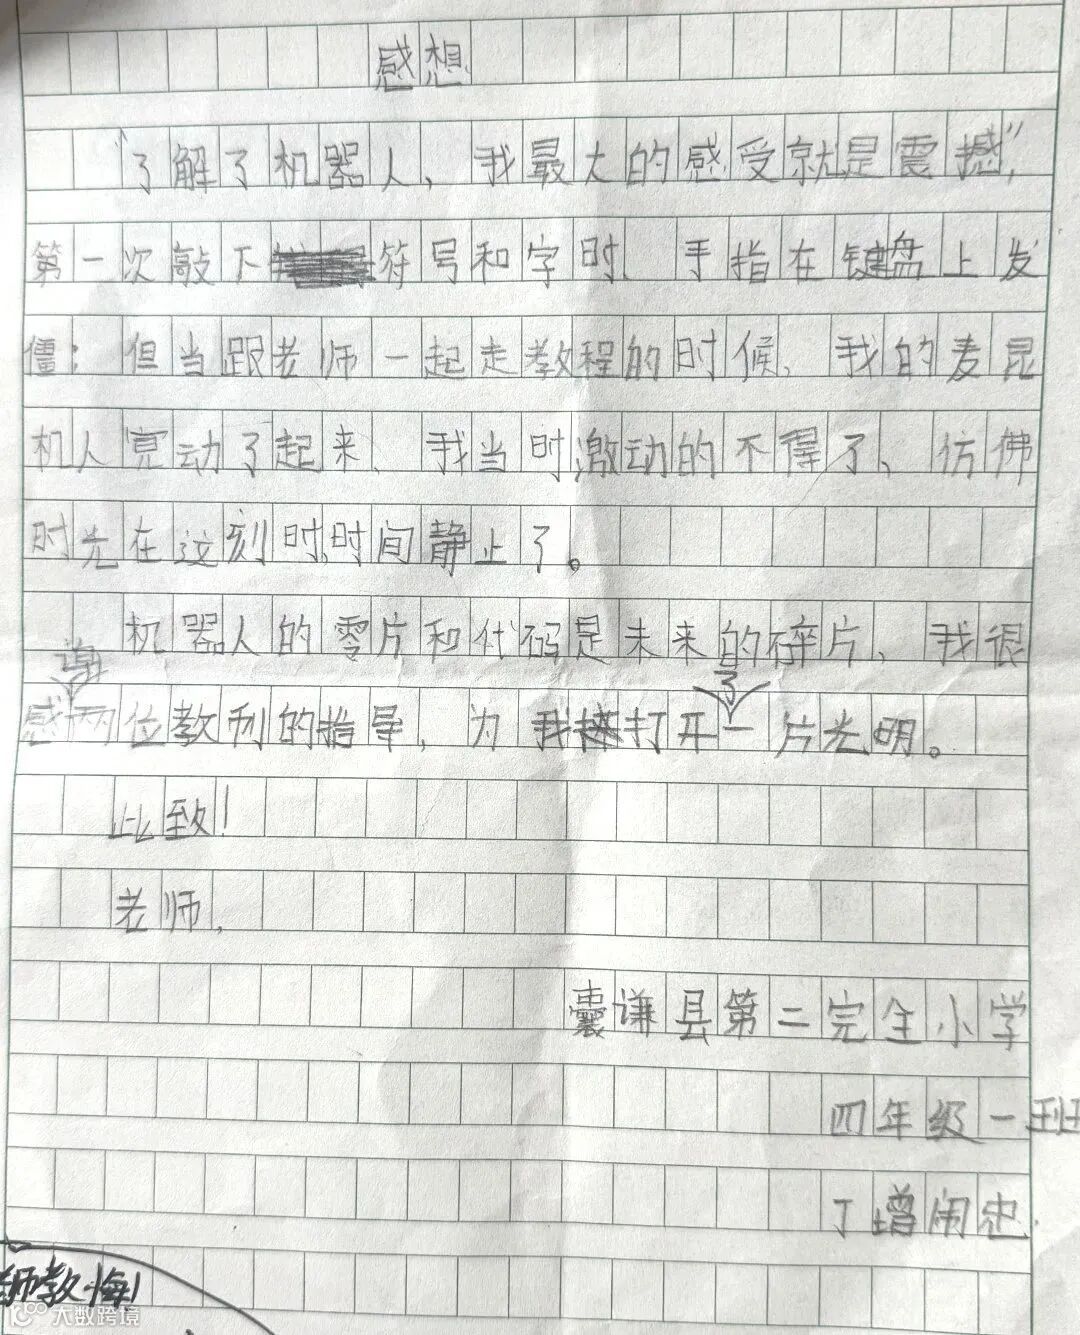 感想
"了解了机器人，我最大的感受就是震撼"，
第一次敲下符号和字时，手指在键盘上发
僵；但当跟老师一起走教程的时候，我的麦昆
机人竟动了起来，我当时激动的不得了，仿佛
时光在这刻时，时间静止了。
机器人的零片和代码是未来的碎片，我很
感谢两位教利的指导，为我打开了一片光明。
此致！
老师，
囊谦县第二完全小学
四年级一班
丁增闹忠
师教悔
大数跨境